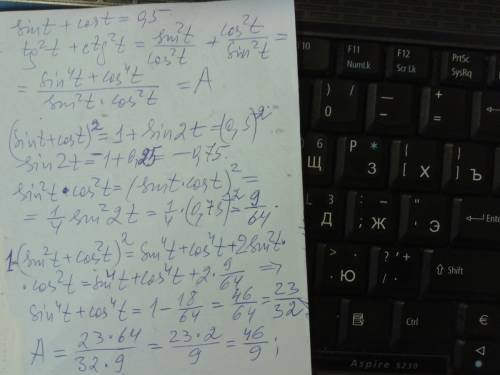 sin t + cos t = 0,5
tg²t + ctg²t = sin²t/cos²t + cos²t/sin²t =
= (sin⁴t + cos⁴t)/(sin²t · cos²t) = A
(sin t + cos t)² = 1 + sin 2t = (0,5)²
sin 2t = 1 + 0,25 = -0,75
sin²t · cos²t = (sin t · cos t)² =
= 1/4 sin²2t = 1/4 · (0,75)² = 9/64
1 = (sin²t + cos²t)² = sin⁴t + cos⁴t + 2sin²t ·
· cos²t = sin⁴t + cos⁴t + 2 · 9/64 ⇒
sin⁴t + cos⁴t = 1 - 18/64 = 46/64 = 23/32
A = 23·64/32·9 = 23·2/9 = 46/9 ;
F10
F11
NumLk
F12
Scr Lk
PrtSc
SysRq
) 0
_ -
+ =
Щ
P З
{ [ Х
} ] Ъ
L Д
: ; Ж
" ' Э
Enter
> . Ю
? /
Shift
Alt Gr
Ctrl
Aspire 5230